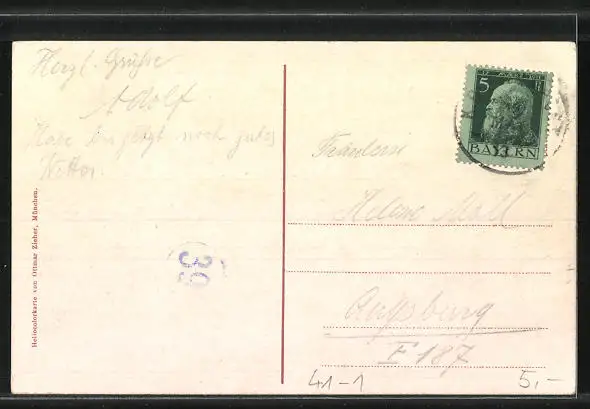 Herzl. Grüsse
Adolf
Habe bis jetzt noch gutes
Wetter.
Heliocolorkarte von Ottmar Zieher, München.
39
12. MÄRZ 1911
5 P
BAYERN
Fräulein
Helene Moll
Augsburg
F 187
41-1
5,-